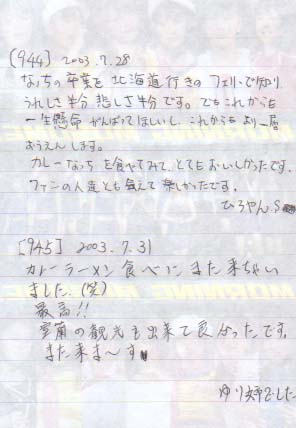 [944] 2003.7.28
なっちの卒業を北海道行きのフェリーで知り
うれしさ半分 悲しさ半分です。でもこれからも
一生懸命がんばってほしいし、これからもより一層
おうえんします。
カレーなっちを食べてみて、とてもおいしかったです。
ファンの人達とも会えて楽しかったです。
ひろやん.S
[945] 2003.7.31
カレーラーメン食べに、また来ちゃい
ました、(笑)
最高!!
室蘭の観光も出来て良かったです。
また来ま〜す
ゆり姉でした
MORNING